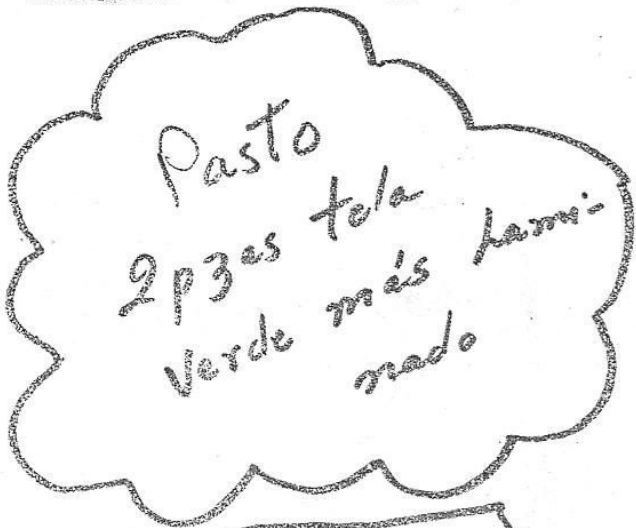 Pasto
2 pzas tela
verde más lami-
nado